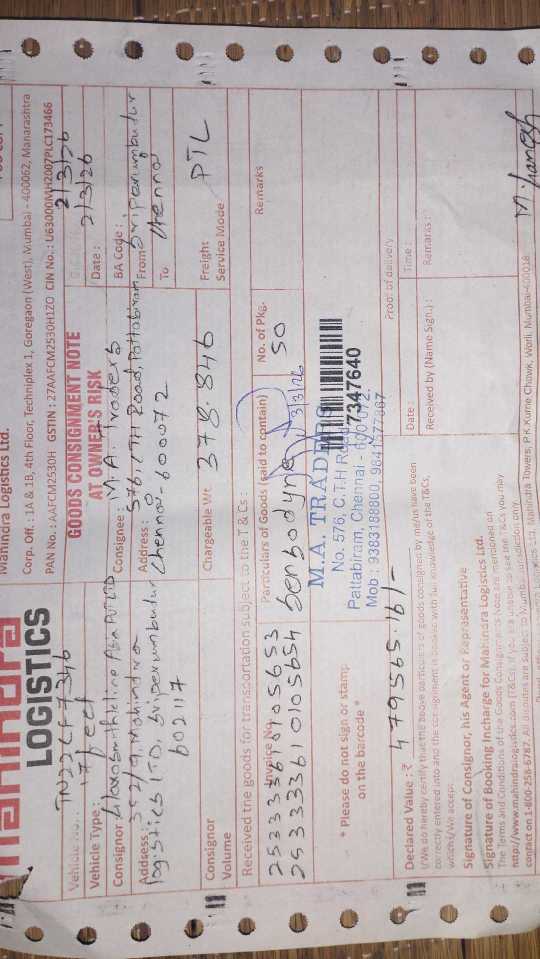 Mahindra Logistics Ltd.
Corp. Off. : 1A & 1B, 4th Floor, Techniplex 1, Goregaon (West), Mumbai - 400062, Maharashtra
PAN No. : AAFCM2530H GSTIN : 27AAFCM2530H1ZO CIN No. : U63000MH2007PLC173466
mahindra
LOGISTICS
GOODS CONSIGNMENT NOTE
AT OWNER'S RISK
2/3/26
Vehicle No. : TN22CF7346
Vehicle Type : 17 feet
Date : 2/3/26
Consignor Glaxosmithkline Asia Pvt LTD
Consignee : M.A. Traders
BA Code :
Addsess : 352/9 Mahindra
logistics LTD, Sriperumbudur
602117
Address : 576, CTH Road, Pattabiram
Chennai - 600072
From Sriperumbudur
To Chennai
Consignor
Volume
Chargeable Wt. 378.846
Freight
Service Mode PTL
Received the goods for transportation subject to the T & Cs :
Invoice No.
Particulars of Goods (said to contain)
No. of Pkg.
Remarks
25333361 0105653
25333361 0105654
Sensodyne
50
3/3/26
* Please do not sign or stamp
on the barcode *
M.A. TRADERS
No. 576, C.T.H Road
Pattabiram, Chennai - 600 072.
Mob : 9383188800, 9841577087
7347640
Declared Value : ₹ 479565.16/-
Proof of delivery
(We do hereby certify that the above particulars of goods consigned by me/us have been
correctly entered into and the consignment is booked with full knowledge of the T&Cs,
which I/We accept.
Date :
Time :
Received by (Name Sign.) :
Remarks :
Signature of Consignor, his Agent or Representative
Signature of Booking Incharge for Mahindra Logistics Ltd.
The Terms and Conditions of the Goods Consignment Note are mentioned on
http://www.mahindralogistics.com (T&Cs) If you are unable to see the T&Cs you may
contact on 1-800-258-6787. All disputes are subject to Mumbai jurisdiction only.
Mahindra Towers, P.K.Kurne Chowk, Worli, Mumbai-400018